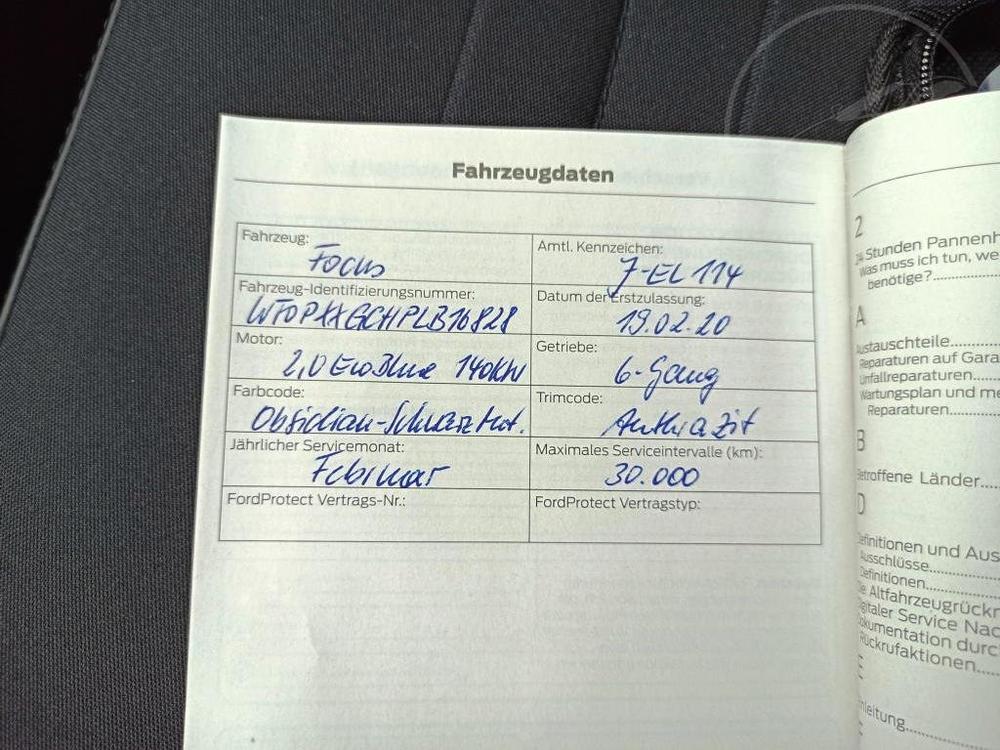 Fahrzeugdaten
Fahrzeug:
Focus
Amtl. Kennzeichen:
7-EL 114
Fahrzeug-Identifizierungsnummer:
WF0PXXGCHPLB16828
Datum der Erstzulassung:
19.02.20
Motor:
2,0 EcoBlue 140kW
Getriebe:
6-Gang
Farbcode:
Obsidian-Schwarz Met.
Trimcode:
Anthrazit
Jährlicher Servicemonat:
Februar
Maximales Serviceintervalle (km):
30.000
FordProtect Vertrags-Nr.:
FordProtect Vertragstyp:
2
24 Stunden Pannenh
Was muss ich tun, we
benötige?
A
Austauschteile
Reparaturen auf Gara
Unfallreparaturen
Wartungsplan und me
Reparaturen
B
Betroffene Länder
D
Definitionen und Aus
Ausschlüsse
Definitionen
Die Altfahrzeugrückn
Digitaler Service Nac
Dokumentation durc
Rückrufaktionen
E
Einleitung